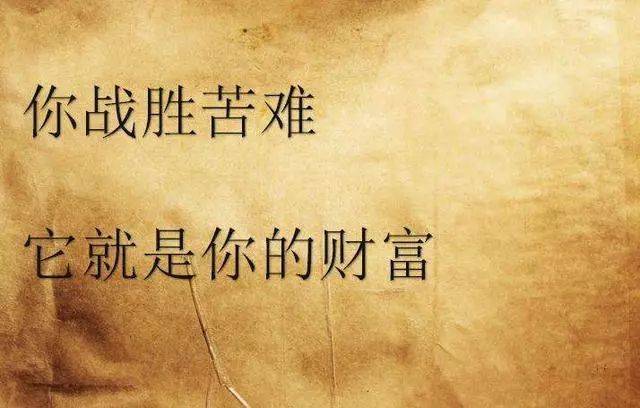 你战胜苦难
它就是你的财富